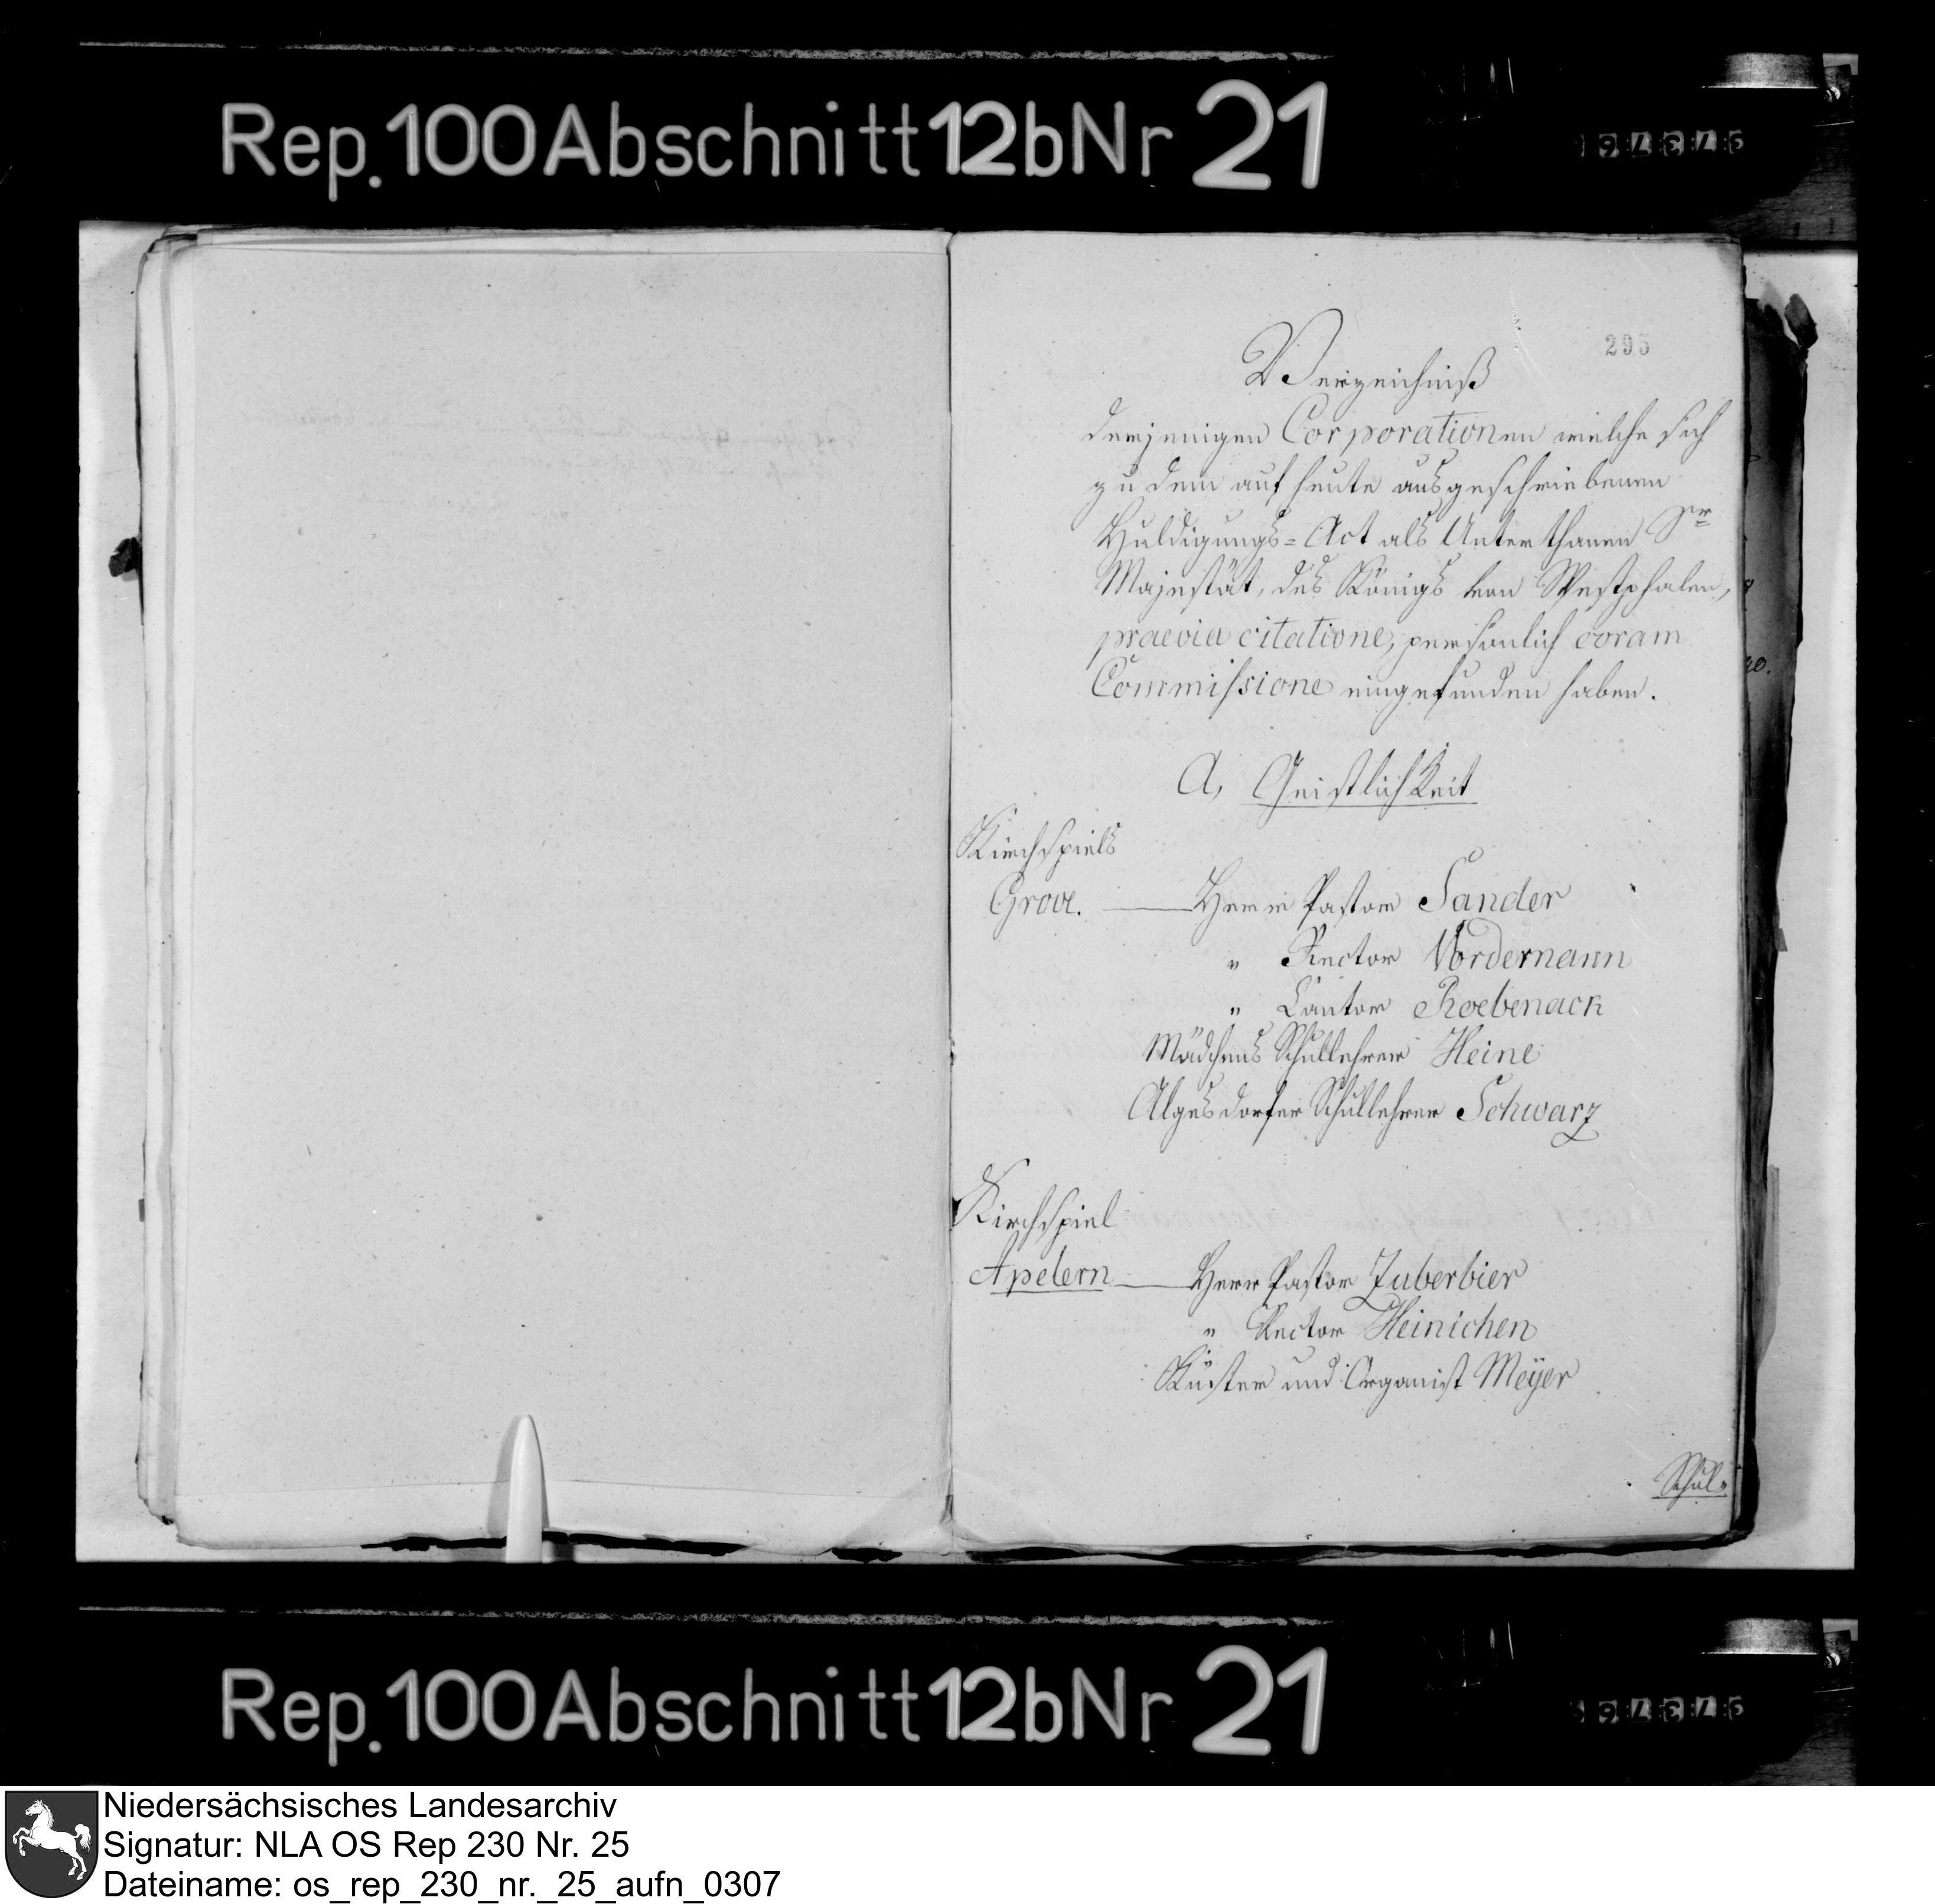 Rep.100Abschnitt12bNr 21
295
Verzeichniß
derjenigen Corporationen welche sich
zu dem auf heute ausgeschriebenen
Huldigungs=Act als Unterthanen Sr
Majestät, des Königs von Westphalen,
praevia citatione, persönlich coram
Commissione eingefunden haben.
A, Geistlichkeit
Kirchspiels
Grove. Herr Pastor Sander
" Rector Vordemann
" Cantor Roebenack
Mädchens Schullehrer Heine
Algesdorfer Schullehrer Schwarz
Kirchspiel
Apelern Herr Pastor Zuberbier
" Rector Heinichen
Küster und Organist Meÿer
Schul=
Rep.100Abschnitt12bNr 21
Niedersächsisches Landesarchiv
Signatur: NLA OS Rep 230 Nr. 25
Dateiname: os_rep_230_nr._25_aufn_0307